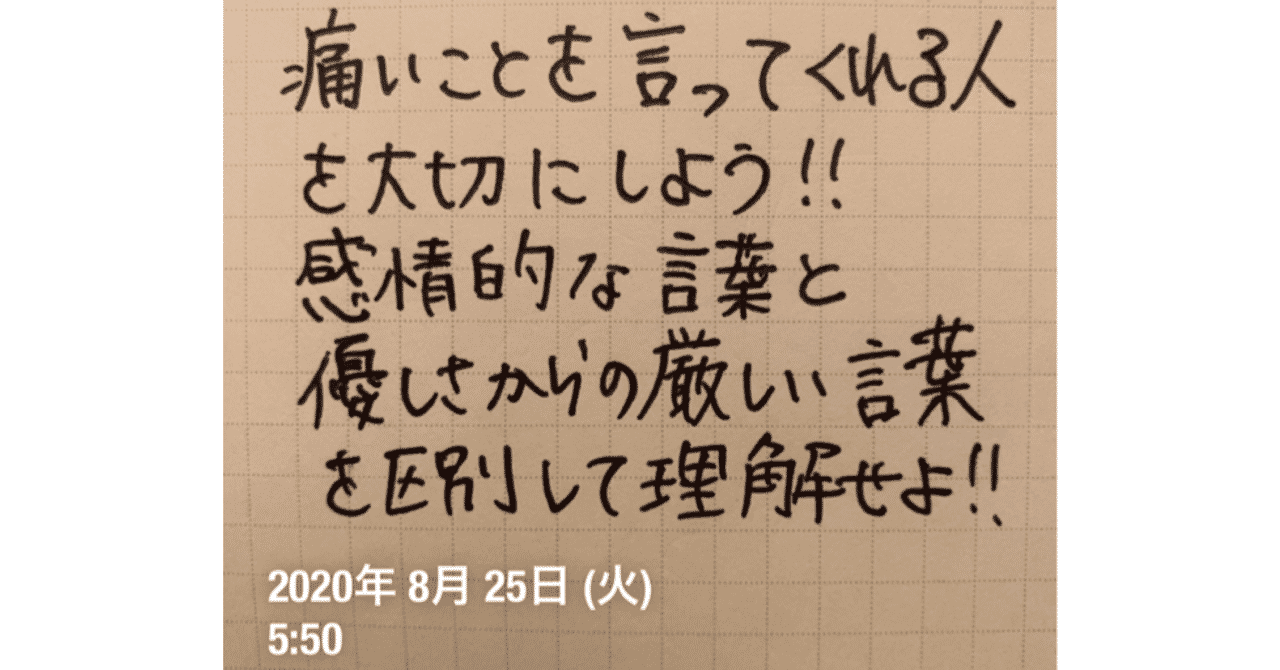 痛いことを言ってくれる人
を大切にしよう!!
感情的な言葉と
優しさからの厳しい言葉
を区別して理解せよ!!
2020年 8月 25日 (火)
5:50